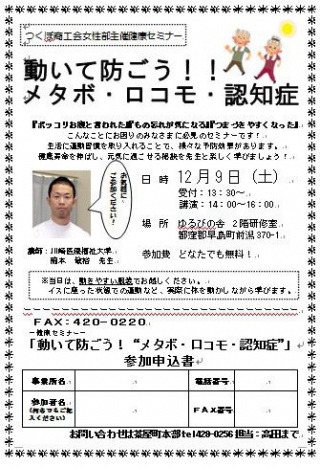 つくぼ商工会女性部主催健康セミナー
動いて防ごう！！
メタボ・ロコモ・認知症
『ポッコリお腹と言われた』『もの忘れが気になる』『つまづきやすくなった』
こんなことにお困りのみなさまに必見のセミナーです！
生活に運動習慣を取り入れることで、様々な予防効果があります。
健康寿命を伸ばし、元気に過ごせる秘訣を先生と楽しく学びましょう！
お気軽に
ご参加ください！
日 時 12月9日（土）
受付：13：30～
講演：14：00～16：00
場 所 ゆるびの舎 2階研修室
都窪郡早島町前潟370-1
参加費 どなたでも無料！
講師：川崎医療福祉大学
先生
※当日は、動きやすい服装でお越しください。
イスに座った状態での運動など、実際に体を動かしながら学びます。
FAX：420-0220
－健康セミナー－
「動いて防ごう！“メタボ・ロコモ・認知症”」
参加申込書
事業所名
電話番号
参加者名
（何名でもご記
入ください）
FAX番号
お問い合わせは茶屋町本部tel428-0256 担当：高田まで